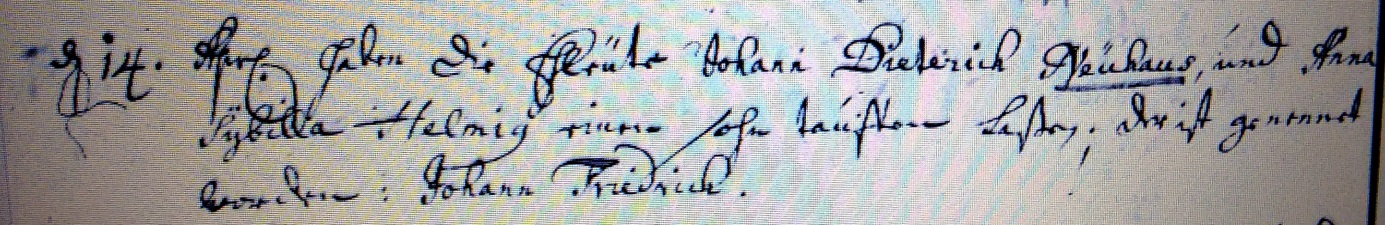 d 14. haben die Eheleüte Johann Dieterich Neühaus, und Anna
Sybilla Helmig einen sohn tauffen lassen, der ist genennet
worden: Johann Friedrich.